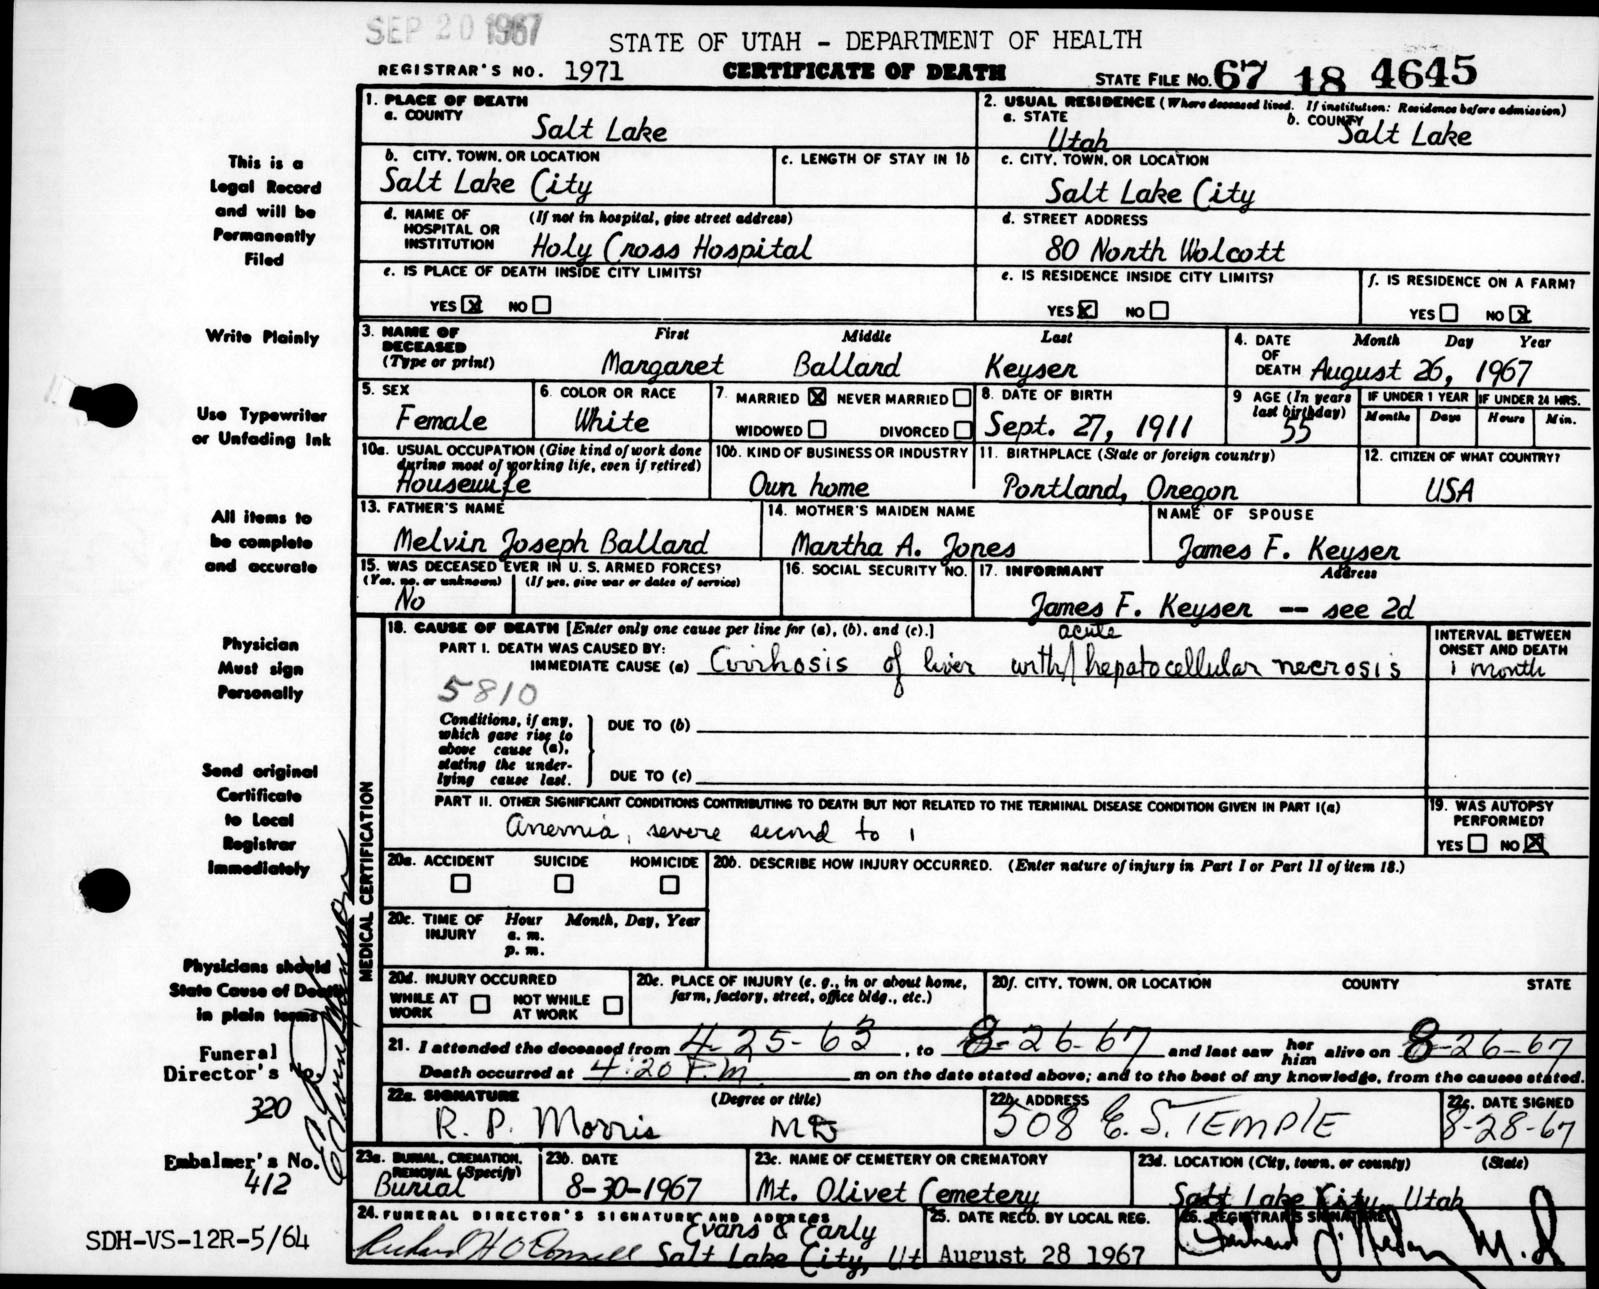 SEP 20 1967
STATE OF UTAH - DEPARTMENT OF HEALTH
REGISTRAR'S NO. 1971 CERTIFICATE OF DEATH STATE FILE NO. 67 18 4645
1. PLACE OF DEATH
a. COUNTY
Salt Lake
2. USUAL RESIDENCE (Where deceased lived. If institution: Residence before admission)
a. STATE b. COUNTY
Utah Salt Lake
b. CITY, TOWN, OR LOCATION c. LENGTH OF STAY IN 1b
Salt Lake City
c. CITY, TOWN, OR LOCATION
Salt Lake City
d. NAME OF HOSPITAL OR INSTITUTION (If not in hospital, give street address)
Holy Cross Hospital
d. STREET ADDRESS
80 North Wolcott
e. IS PLACE OF DEATH INSIDE CITY LIMITS?
YES X NO
e. IS RESIDENCE INSIDE CITY LIMITS?
YES X NO
f. IS RESIDENCE ON A FARM?
YES NO X
3. NAME OF DECEASED (Type or print) First Middle Last
Margaret Ballard Keyser
4. DATE OF DEATH Month Day Year
August 26, 1967
5. SEX
Female
6. COLOR OR RACE
White
7. MARRIED X NEVER MARRIED
WIDOWED DIVORCED
8. DATE OF BIRTH
Sept. 27, 1911
9 AGE (In years last birthday)
55
IF UNDER 1 YEAR IF UNDER 24 HRS.
Months Days Hours Min.
10a. USUAL OCCUPATION (Give kind of work done during most of working life, even if retired)
Housewife
10b. KIND OF BUSINESS OR INDUSTRY
Own home
11. BIRTHPLACE (State or foreign country)
Portland, Oregon
12. CITIZEN OF WHAT COUNTRY?
USA
13. FATHER'S NAME
Melvin Joseph Ballard
14. MOTHER'S MAIDEN NAME
Martha A. Jones
NAME OF SPOUSE
James F. Keyser
15. WAS DECEASED EVER IN U. S. ARMED FORCES?
(Yes, no, or unknown) (If yes, give war or dates of service)
No
16. SOCIAL SECURITY NO.
17. INFORMANT Address
James F. Keyser -- see 2d
18. CAUSE OF DEATH [Enter only one cause per line for (a), (b), and (c).]
PART I. DEATH WAS CAUSED BY:
acute
IMMEDIATE CAUSE (a) Cirrhosis of liver with hepatocellular necrosis
INTERVAL BETWEEN ONSET AND DEATH
1 month
5810
Conditions, if any, which gave rise to above cause (a), stating the underlying cause last.
DUE TO (b)
DUE TO (c)
PART II. OTHER SIGNIFICANT CONDITIONS CONTRIBUTING TO DEATH BUT NOT RELATED TO THE TERMINAL DISEASE CONDITION GIVEN IN PART I(a)
Anemia, severe second to 1
19. WAS AUTOPSY PERFORMED?
YES NO X
20a. ACCIDENT SUICIDE HOMICIDE
20b. DESCRIBE HOW INJURY OCCURRED. (Enter nature of injury in Part I or Part II of item 18.)
20c. TIME OF INJURY Hour Month, Day, Year
a. m.
p. m.
20d. INJURY OCCURRED
WHILE AT WORK NOT WHILE AT WORK
20e. PLACE OF INJURY (e. g., in or about home, farm, factory, street, office bldg., etc.)
20f. CITY, TOWN, OR LOCATION COUNTY STATE
21. I attended the deceased from 4-25-63, to 8-26-67 and last saw her him alive on 8-26-67
Death occurred at 4:20 P.M. m on the date stated above; and to the best of my knowledge, from the causes stated.
22a. SIGNATURE (Degree or title)
R. P. Morris MD
22b. ADDRESS
508 E. S. TEMPLE
22c. DATE SIGNED
8-28-67
23a. BURIAL, CREMATION, REMOVAL (Specify)
Burial
23b. DATE
8-30-1967
23c. NAME OF CEMETERY OR CREMATORY
Mt. Olivet Cemetery
23d. LOCATION (City, town, or county) (State)
Salt Lake City, Utah
24. FUNERAL DIRECTOR'S SIGNATURE AND ADDRESS
Evans & Early
Salt Lake City, Ut
25. DATE RECD. BY LOCAL REG.
August 28 1967
26. REGISTRAR'S SIGNATURE
M.D.
MEDICAL CERTIFICATION
This is a
Legal Record
and will be
Permanently
Filed
Write Plainly
Use Typewriter
or Unfading Ink
All items to
be complete
and accurate
Physician
Must sign
Personally
Send original
Certificate
to Local
Registrar
Immediately
Physicians should
State Cause of Death
in plain terms
Funeral
Director's No.
320
Embalmer's No.
412
SDH-VS-12R-5/64